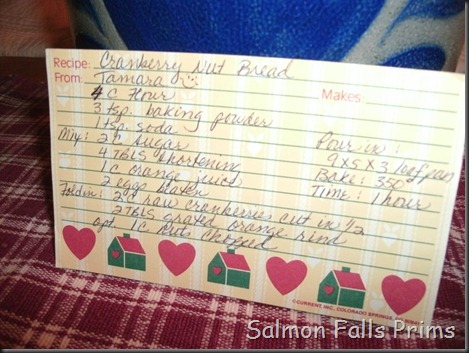 Recipe: Cranberry Nut Bread
From: Tamara
Makes:
4 C flour
3 tsp. baking powder
1 tsp. soda
Mix: 2 C sugar
4 TBLS shortening
1 C orange juice
2 eggs beaten
Fold in: 2 C raw cranberries cut in 1/2
2 TBLS grated orange rind
opt 1 C nuts chopped
Pour in:
9 x 5 x 3 loaf pan
Bake: 350°
Time: 1 hour
©CURRENT, INC., COLORADO SPRINGS,
Salmon Falls Prims